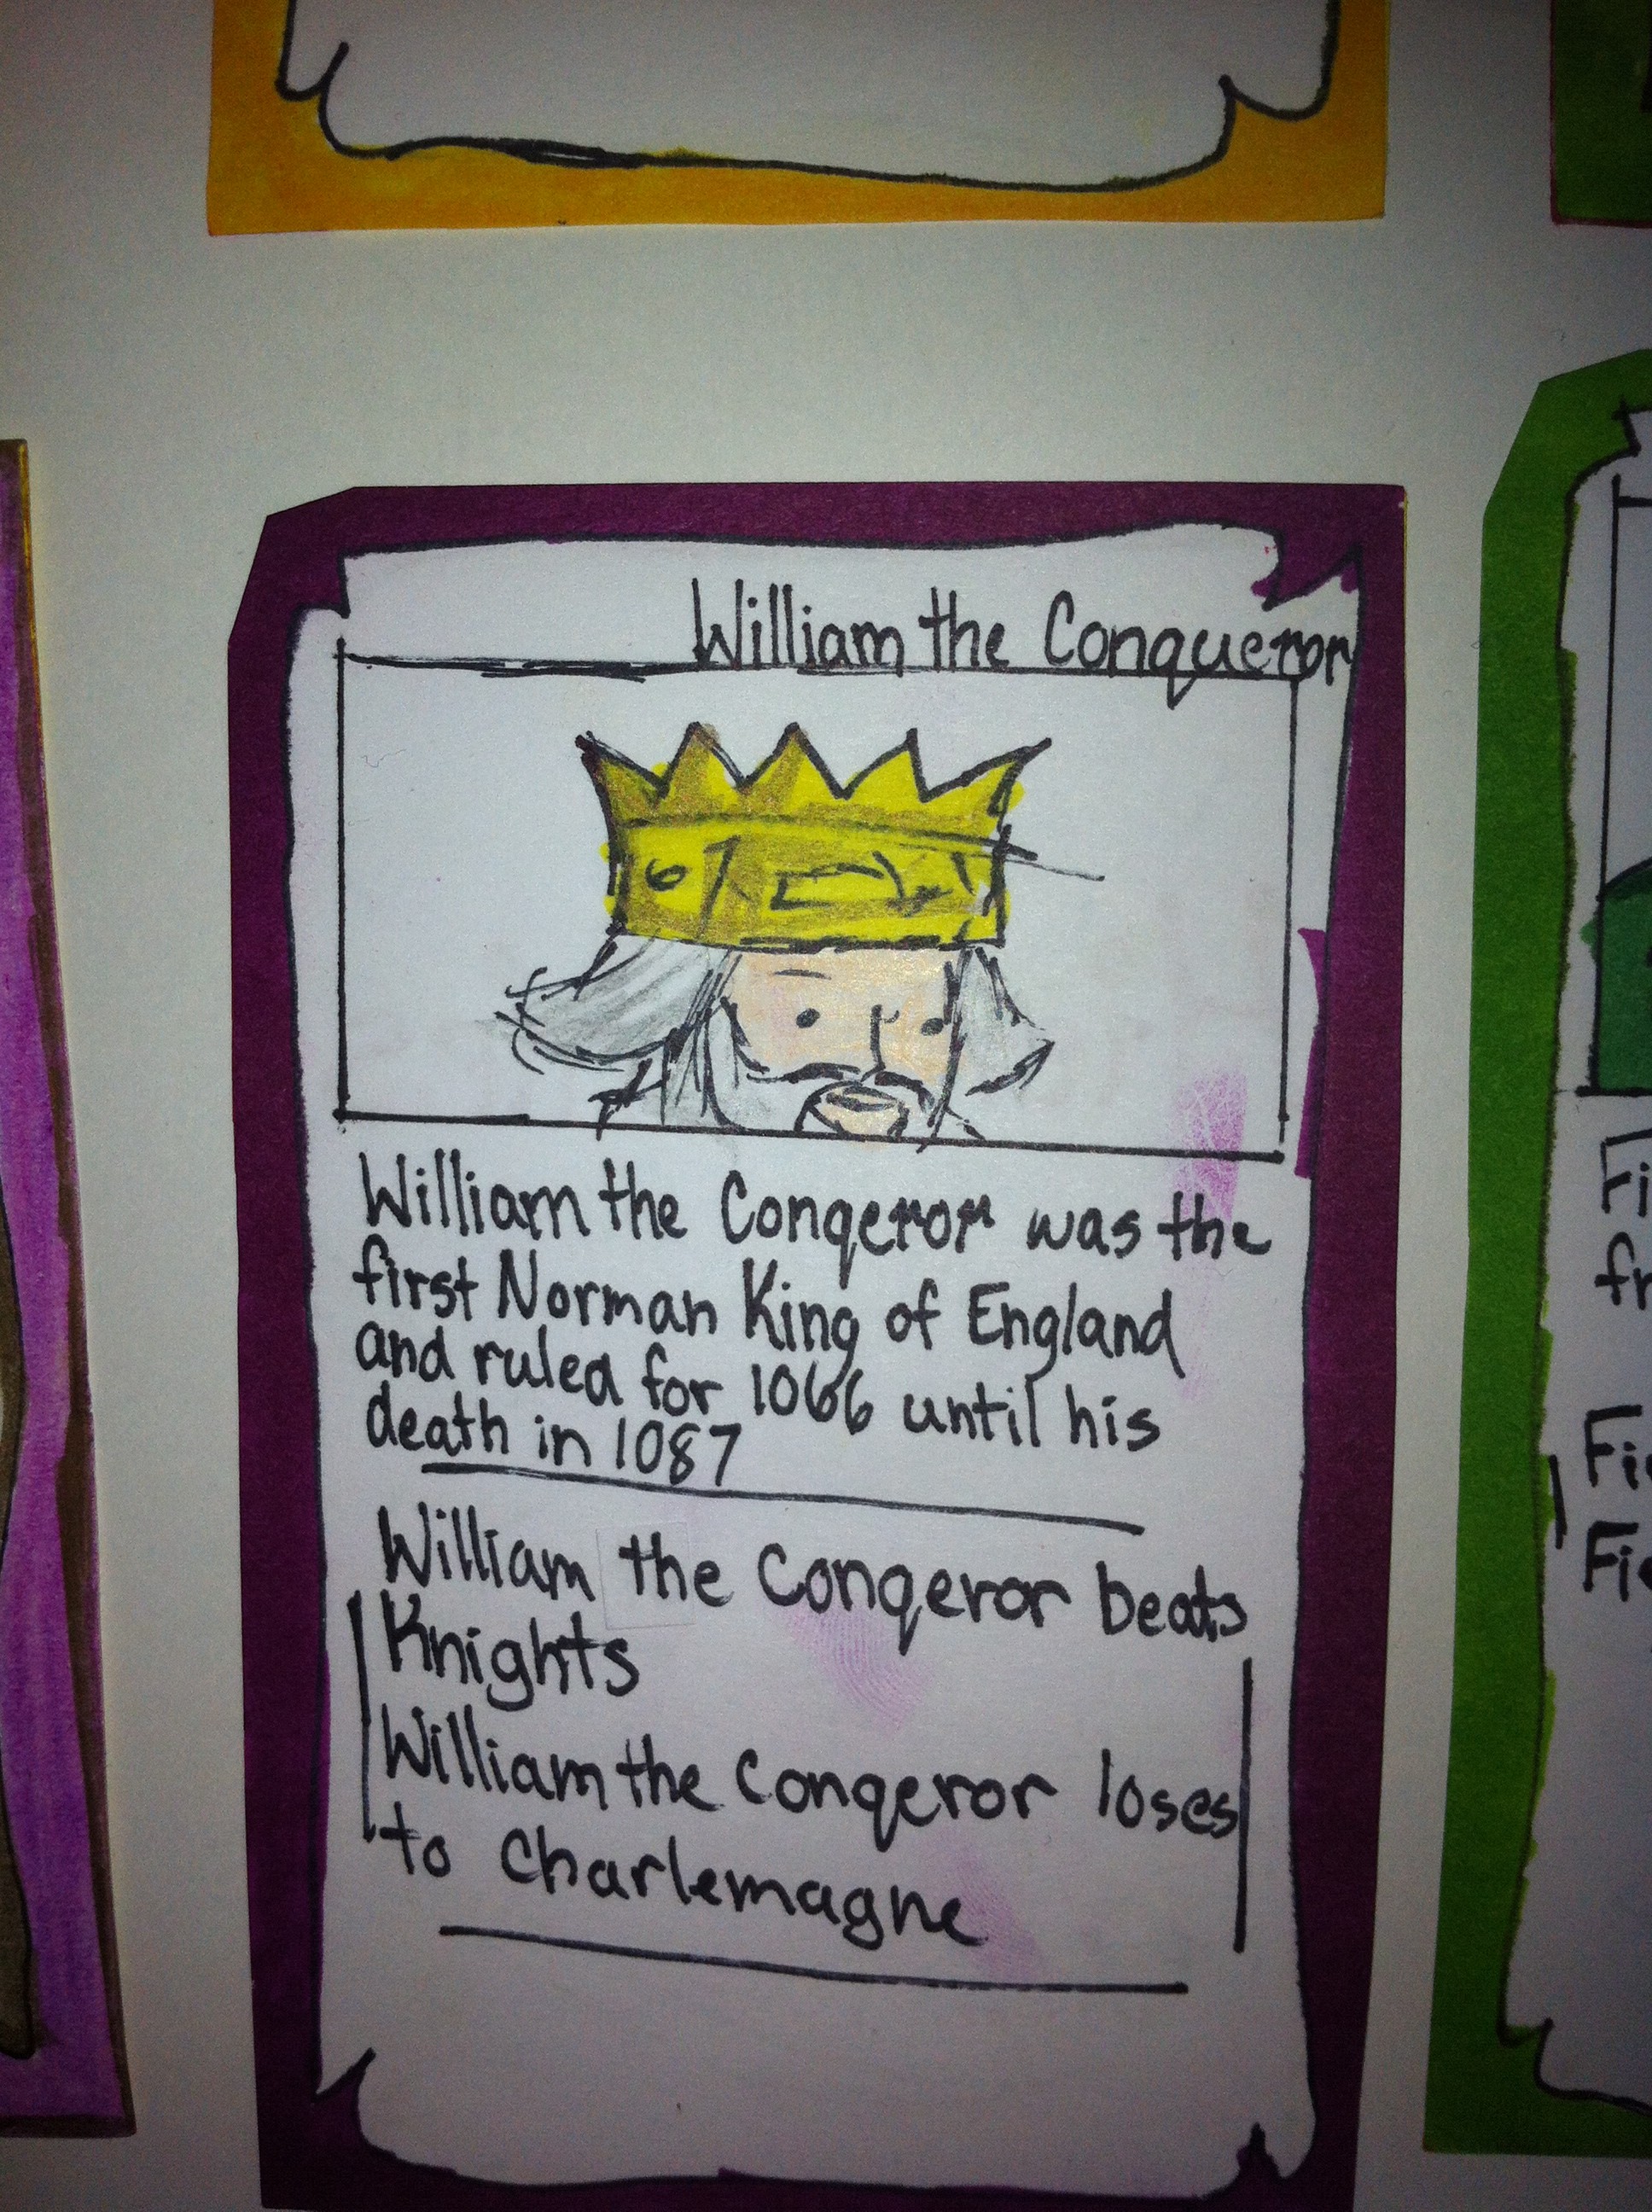 William the Conqueror
William the Conqeror was the
first Norman King of England
and ruled for 1066 until his
death in 1087
William the Conqeror beats
Knights
William the Conqeror loses
to Charlemagne
Fi
fr
Fie
Fie